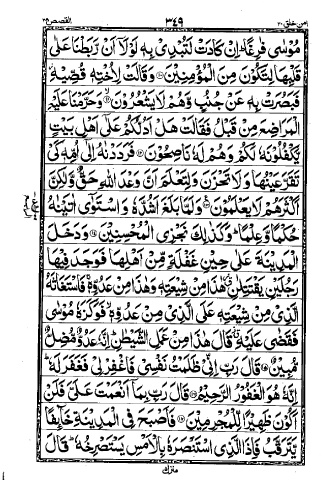 امن خلق ٢٠ ٣٤٩ القصص ٢٨
مُوْسٰى فٰرِغًا ؕ اِنْ كَادَتْ لَتُبْدِيْ بِهٖ لَوْلَاۤ اَنْ رَّبَطْنَا عَلٰى
قَلْبِهَا لِتَكُوْنَ مِنَ الْمُؤْمِنِيْنَ ۞ وَقَالَتْ لِاُخْتِهٖ قُصِّيْهِ ؗ
فَبَصُرَتْ بِهٖ عَنْ جُنُبٍ وَّهُمْ لَا يَشْعُرُوْنَ ۞ وَحَرَّمْنَا عَلَيْهِ
الْمَرَاضِعَ مِنْ قَبْلُ فَقَالَتْ هَلْ اَدُلُّكُمْ عَلٰۤى اَهْلِ بَيْتٍ
يَّكْفُلُوْنَهٗ لَكُمْ وَهُمْ لَهٗ نٰصِحُوْنَ ۞ فَرَدَدْنٰهُ اِلٰۤى اُمِّهٖ كَيْ
تَقَرَّ عَيْنُهَا وَلَا تَحْزَنَ وَلِتَعْلَمَ اَنَّ وَعْدَ اللّٰهِ حَقٌّ وَّلٰكِنَّ
اَكْثَرَهُمْ لَا يَعْلَمُوْنَ ۞ وَلَمَّا بَلَغَ اَشُدَّهٗ وَاسْتَوٰۤى اٰتَيْنٰهُ
حُكْمًا وَّعِلْمًا ؕ وَكَذٰلِكَ نَجْزِي الْمُحْسِنِيْنَ ۞ وَدَخَلَ
الْمَدِيْنَةَ عَلٰى حِيْنِ غَفْلَةٍ مِّنْ اَهْلِهَا فَوَجَدَ فِيْهَا
رَجُلَيْنِ يَقْتَتِلٰنِ ؗ هٰذَا مِنْ شِيْعَتِهٖ وَهٰذَا مِنْ عَدُوِّهٖ ۚ فَاسْتَغَاثَهُ
الَّذِيْ مِنْ شِيْعَتِهٖ عَلَى الَّذِيْ مِنْ عَدُوِّهٖ ۙ فَوَكَزَهٗ مُوْسٰى
فَقَضٰى عَلَيْهِ ؗ قَالَ هٰذَا مِنْ عَمَلِ الشَّيْطٰنِ ؕ اِنَّهٗ عَدُوٌّ مُّضِلٌّ
مُّبِيْنٌ ۞ قَالَ رَبِّ اِنِّيْ ظَلَمْتُ نَفْسِيْ فَاغْفِرْ لِيْ فَغَفَرَ لَهٗ ؕ
اِنَّهٗ هُوَ الْغَفُوْرُ الرَّحِيْمُ ۞ قَالَ رَبِّ بِمَاۤ اَنْعَمْتَ عَلَيَّ فَلَنْ
اَكُوْنَ ظَهِيْرًا لِّلْمُجْرِمِيْنَ ۞ فَاَصْبَحَ فِي الْمَدِيْنَةِ خَآئِفًا
يَّتَرَقَّبُ فَاِذَا الَّذِي اسْتَنْصَرَهٗ بِالْاَمْسِ يَسْتَصْرِخُهٗ ؕ قَالَ
منزل